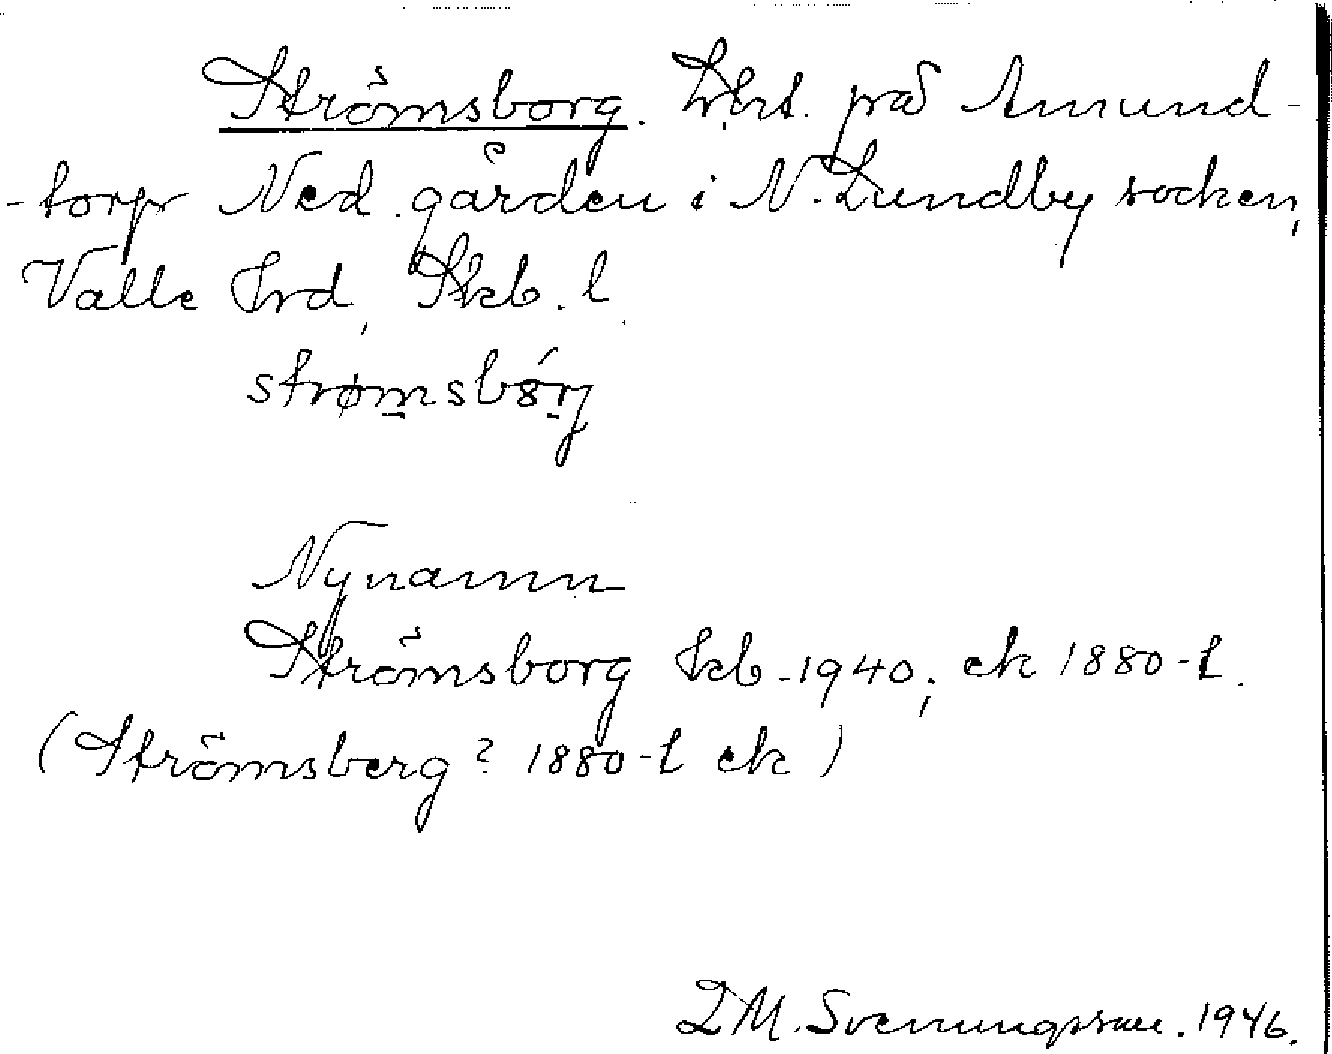 Strömsborg. Lht. på Amund-
-torp Ned. gården i N. Lundby socken,
Valle hrd, Skb. l.
strømsbórj
Nynamn
Strömsborg Jkb. 1940; ek 1880-t.
(Strömsberg? 1880-t ek)
L M. Svenungsson. 1946.